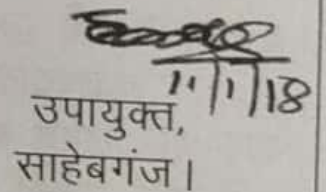 11/1/18
उपायुक्त,
साहेबगंज।